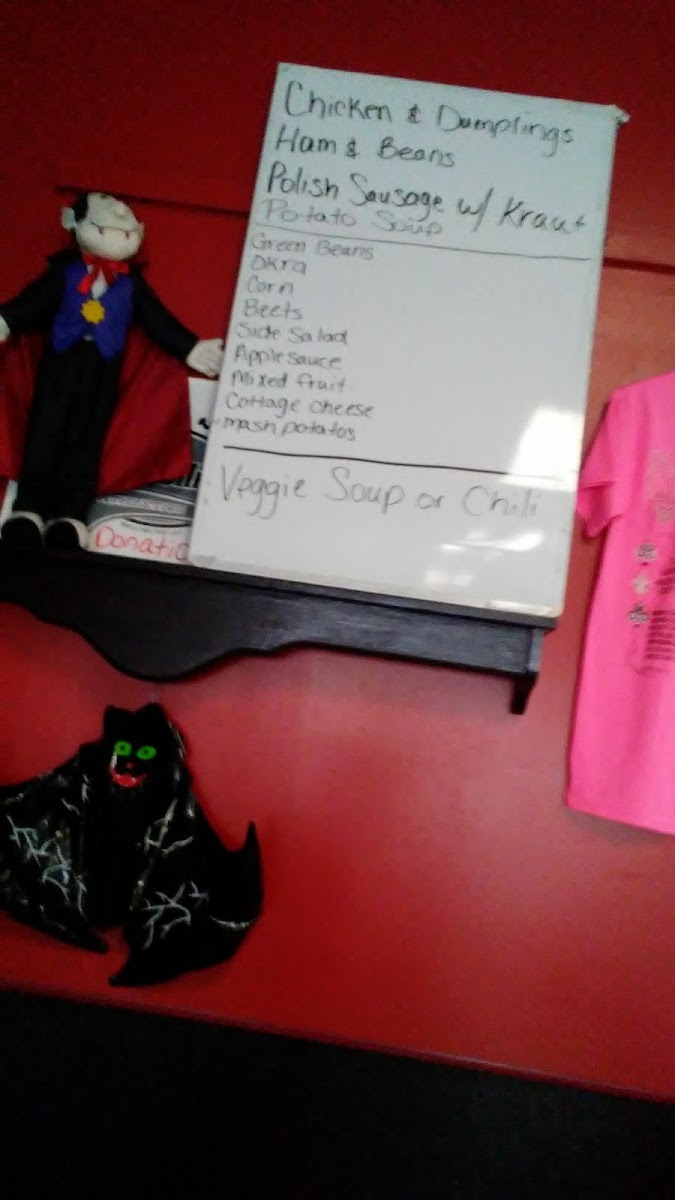 Chicken & Dumplings
Ham & Beans
Polish Sausage w/ Kraut
Potato Soup
Green Beans
Okra
Corn
Beets
Side Salad
Applesauce
Mixed fruit
Cottage cheese
mash potatos
Veggie Soup or Chili
Donatio